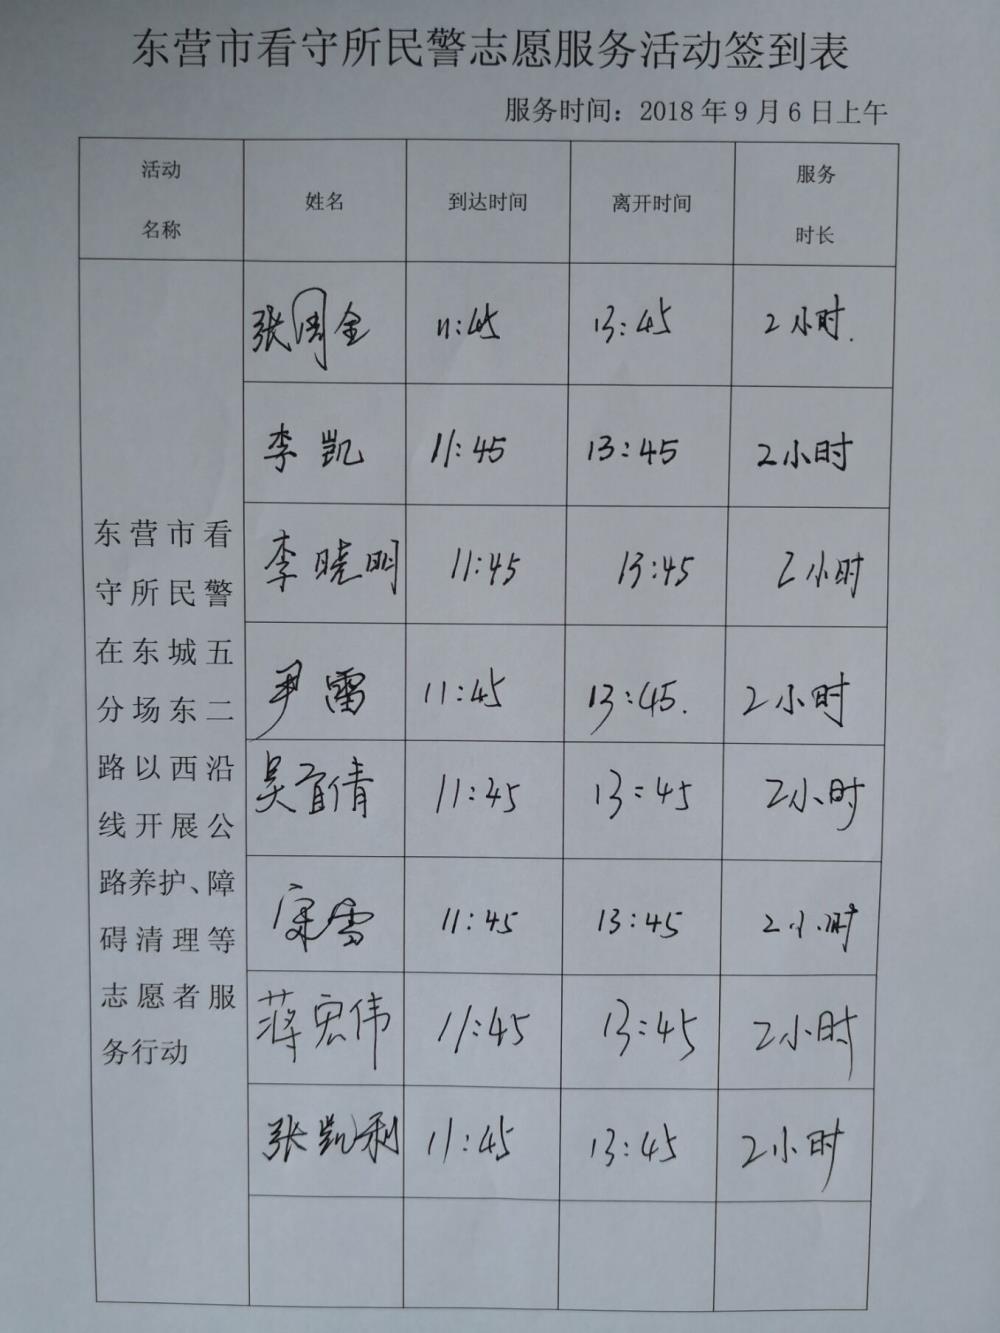 东营市看守所民警志愿服务活动签到表
服务时间：2018年9月6日上午
活动
名称
姓名
到达时间
离开时间
服务
时长
东营市看
守所民警
在东城五
分场东二
路以西沿
线开展公
路养护、障
碍清理等
志愿者服
务行动
张周全 11:45 13:45 2小时.
李凯 11:45 13:45 2小时
李晓明 11:45 13:45 2小时
尹雷 11:45 13:45. 2小时
吴宜倩 11:45 13:45 2小时
11:45 13:45 2小时
蒋宏伟 11:45 13:45 2小时
张凯利 11:45 13:45 2小时